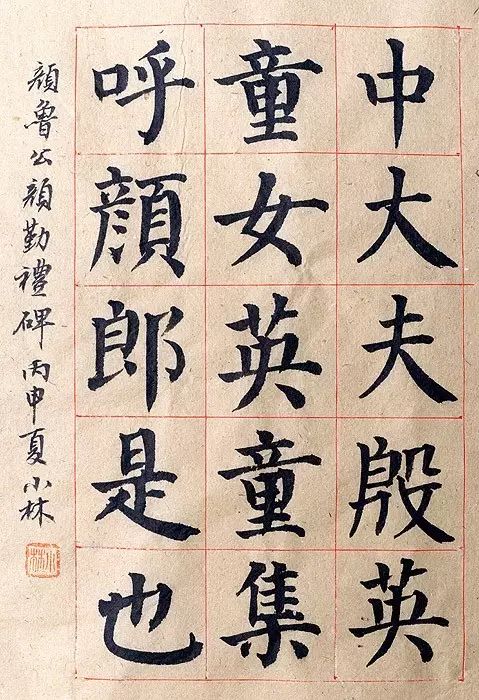 中大夫殷英
童女英童集
呼顔郎是也
顔魯公顔勤禮碑丙申夏小林
小林